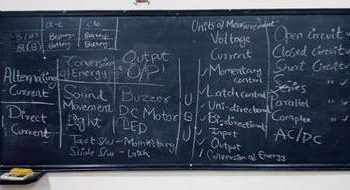 a-c
c to
Alternating
Current
Direct
Current
Conversion
of Energy
Output
O/P
Sound
Movement
Light
Buzzer
DC Motor
LED
Tact S/w - Momentary
Slide S/w - Latch
Units of Measurement
Voltage
Current
Momentary
control
Latch control
Uni-directional
Bi-directional
Input
Output
Conversion of Energy
Open Circuit
Closed Circuit
Short Circuit
Series "
Parallel "
Complex "
AC/DC